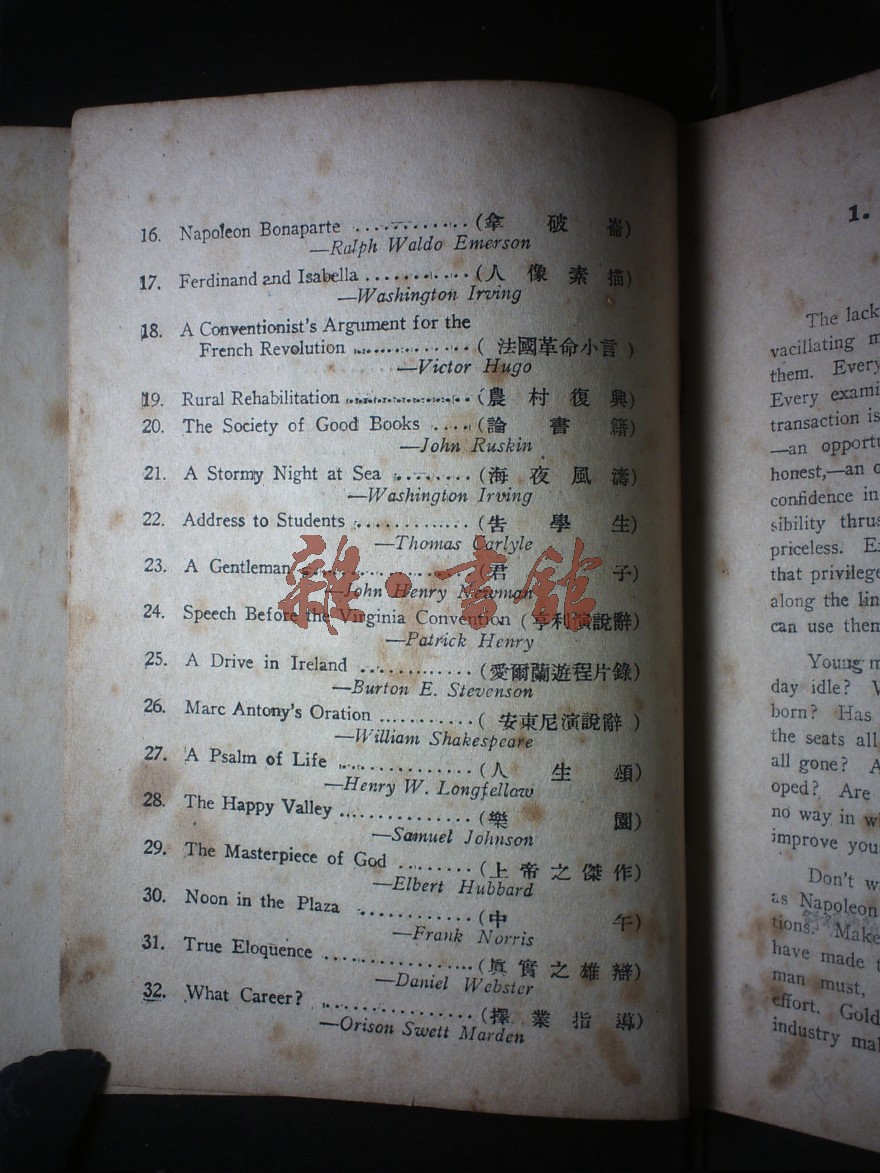 16. Napoleon Bonaparte ............(拿破崙)
—Ralph Waldo Emerson
17. Ferdinand and Isabella............(人像素描)
—Washington Irving
18. A Conventionist's Argument for the
French Revolution ............( 法國革命小言 )
—Victor Hugo
19. Rural Rehabilitation ............(農村復興)
20. The Society of Good Books .....(論書籍)
—John Ruskin
21. A Stormy Night at Sea .........(海夜風濤)
—Washington Irving
22. Address to Students .............(告學生)
—Thomas Carlyle
23. A Gentleman ....................(君子)
—John Henry Newman
24. Speech Before the Virginia Convention (亨利演說辭)
—Patrick Henry
25. A Drive in Ireland .............(愛爾蘭遊程片錄)
—Burton E. Stevenson
26. Marc Antony's Oration ...........( 安東尼演說辭 )
—William Shakespeare
27. A Psalm of Life ...............(人生頌)
—Henry W. Longfellow
28. The Happy Valley ...............(樂園)
—Samuel Johnson
29. The Masterpiece of God ........(上帝之傑作)
—Elbert Hubbard
30. Noon in the Plaza ............(中午)
—Frank Norris
31. True Eloquence .................(眞實之雄辯)
—Daniel Webster
32. What Career? .................(擇業指導)
—Orison Swett Marden
雜·書館
1.
The lack
vacillating
them. Every
Every
transaction is
—an
honest,—an
confidence in
priceless.
that privilege
along the
can use them
Young
day idle?
born? Has
the seats all
all gone?
Are
no way in
improve
Don't
as Napoleon
tions. Make
have made
man must,
effort. Gold
industry